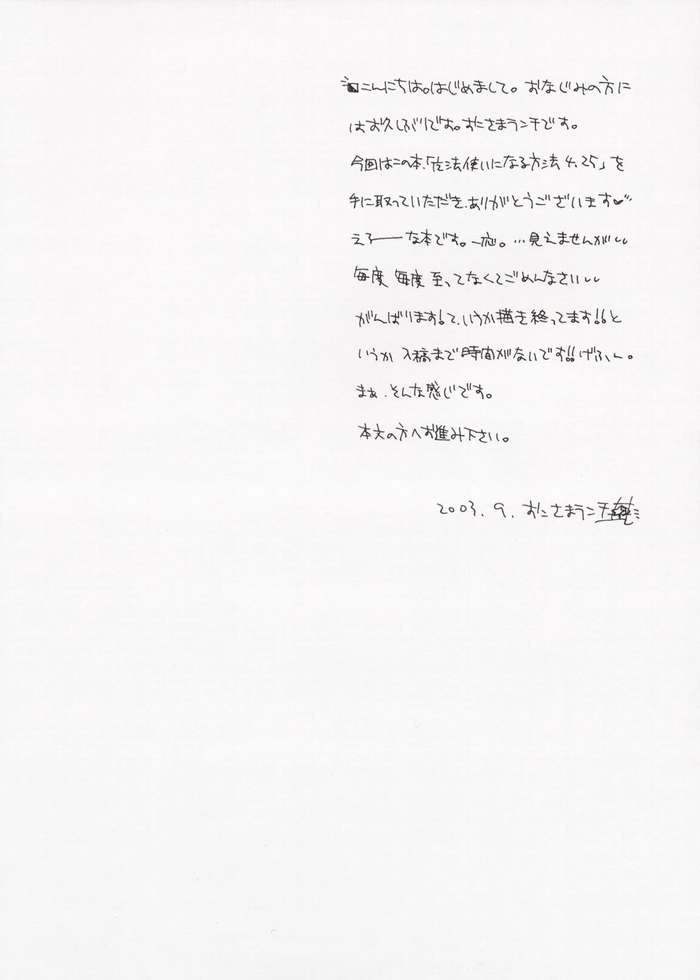 こんにちは。はじめまして。おなじみの方に
はお久しぶりです。おにさまランチです。
今回はこの本、「魔法使いになる方法4.25」を
手に取っていただき、ありがとうございます♥
えろーーな本です。一応。…見えませんが
毎度 毎度 至ってなくてごめんなさい
がんばります!て、いうか描き終ってます!!と
いうか 入稿まで時間がないです!!げふ、
まぁ、そんな感じです。
本文の方へお進み下さい。
2003.9. おにさまランチ